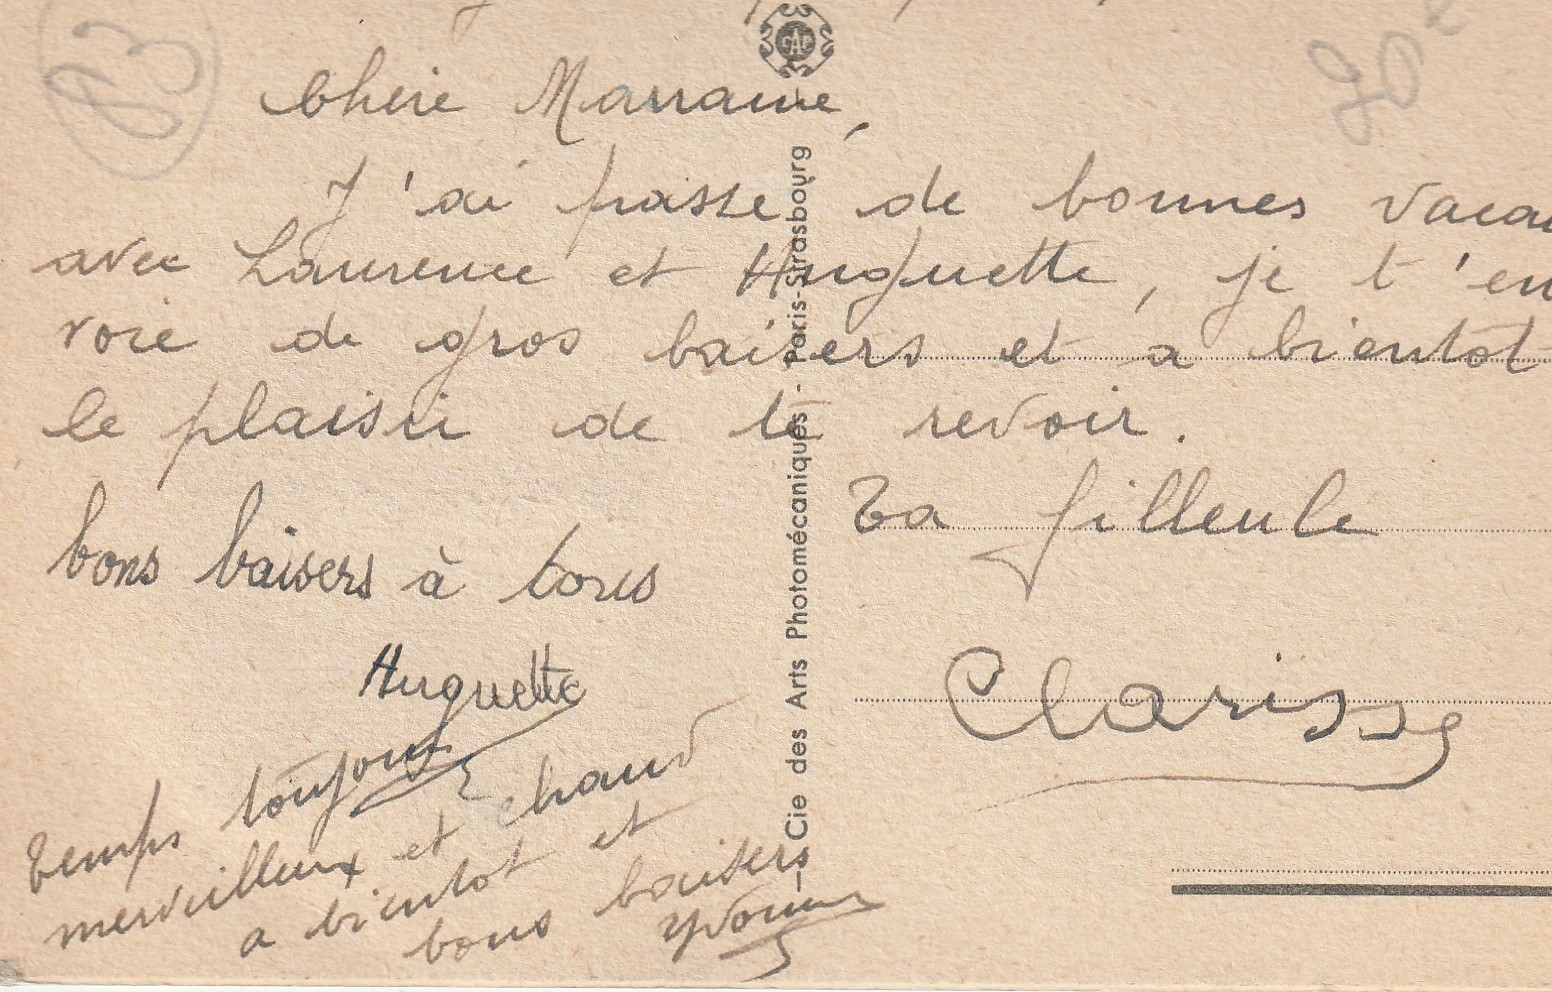 83
CAP
Chère Marraine,
J'ai passé de bonnes vacan
avec Laurence et Huguette, je t'en
voie de gros baisers et a bientôt
le plaisir de te revoir.
Ta filleule
Clarisse
bons baisers à tous
Huguette
Temps toujours
merveilleux et chaud
a bientot et
bons baisers
Yvonne
Cie des Arts Photomécaniques - Paris-Strasbourg